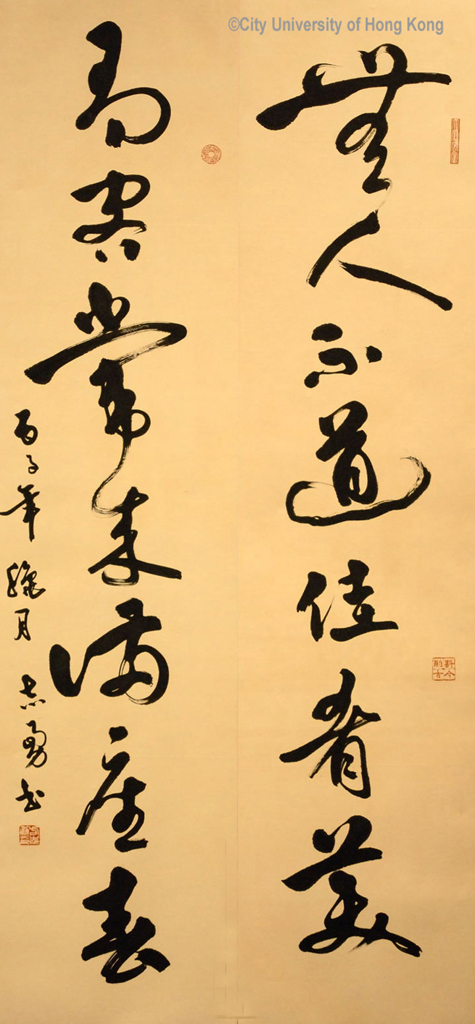 ©City University of Hong Kong
無人不道佳肴美
有客常來滿座春
丙子年臘月志勇書